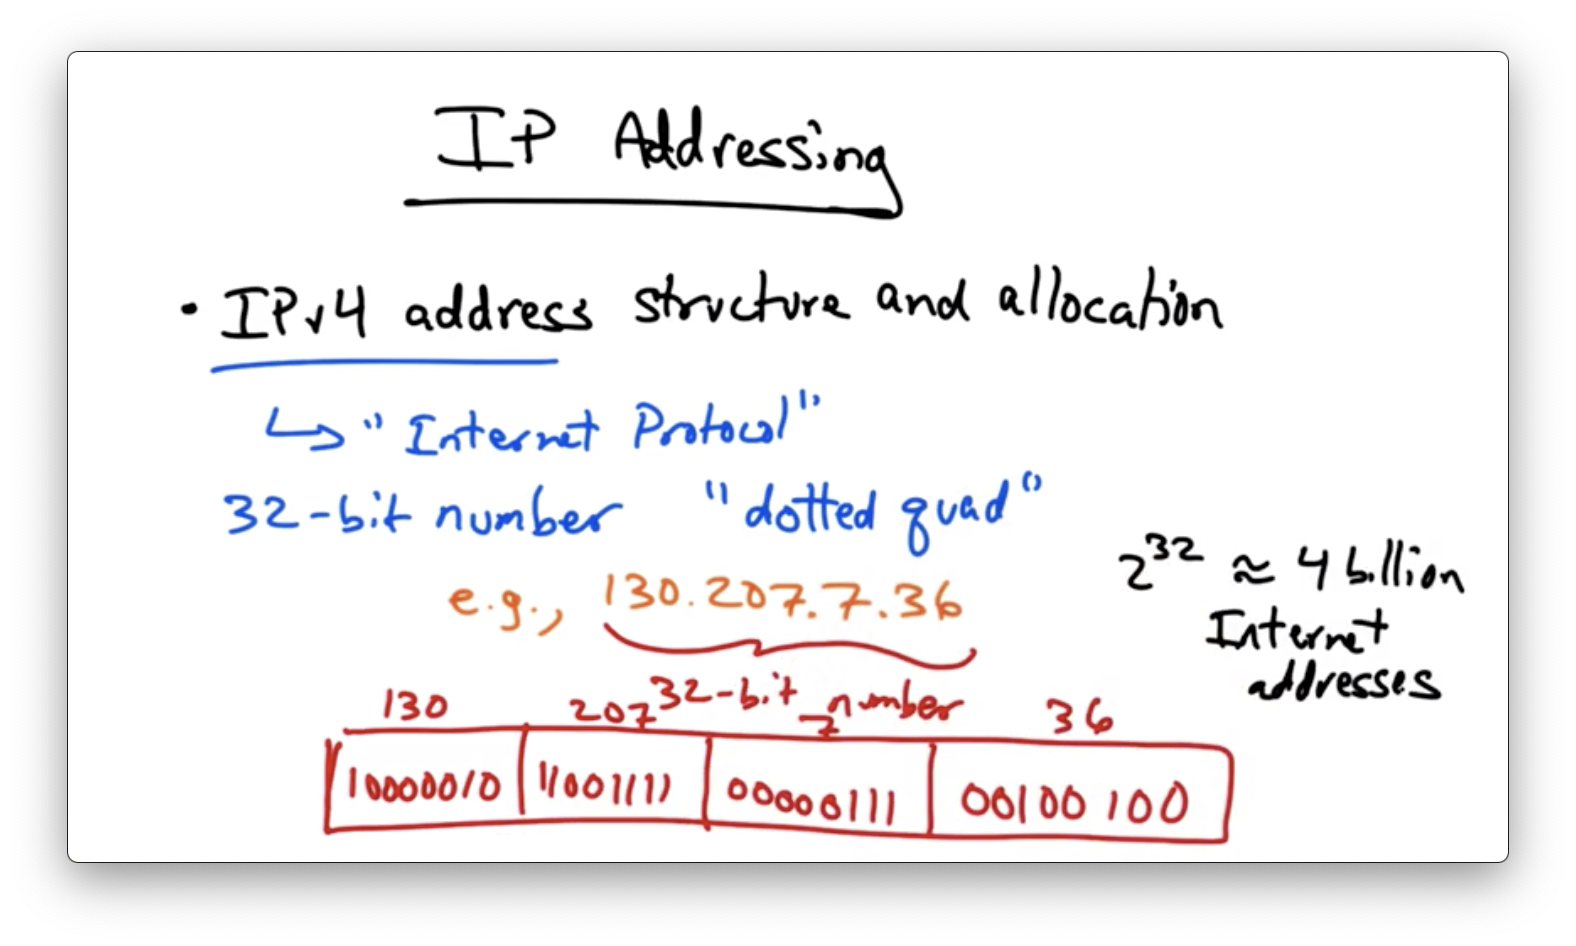 IP Addressing
• IPv4 address structure and allocation
↳ "Internet Protocol"
32-bit number "dotted quad"
e.g., 130.207.7.36
2^32 ≈ 4 billion
Internet
addresses
32-bit number
130 207 7 36
10000010 11001111 00000111 00100100